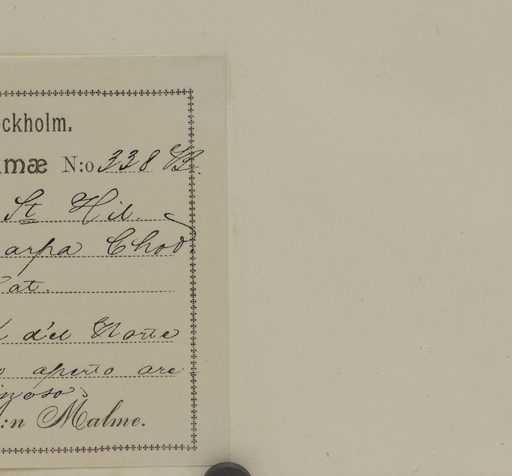 ockholm.
mæ N:o 338 B.
St Hil.
arpa Chod
at.
d'el Norte
aperto are
:n Malme.